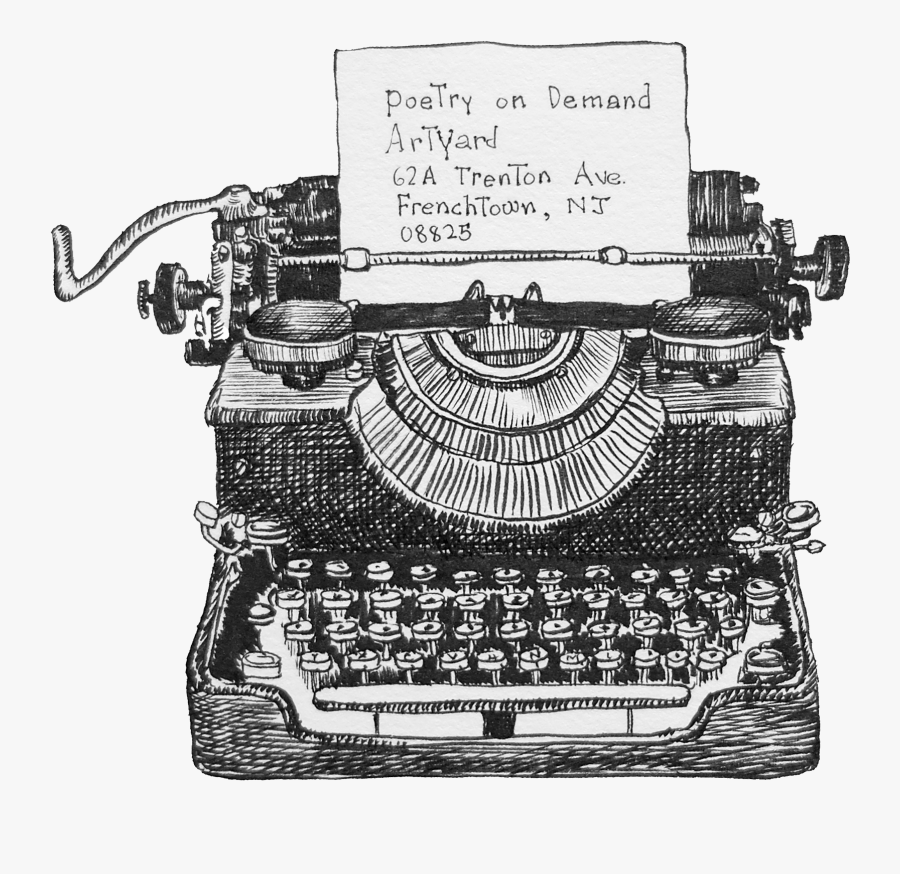 poeTry on Demand
ArTyard
62A TrenTon Ave.
FrenchTown, NJ
08825